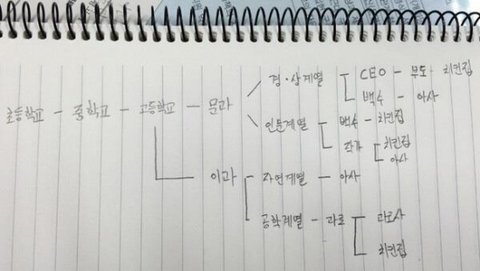 경·상계열 CEO - 부도 - 치킨집
백수 - 아사
초등학교 - 중학교 - 고등학교 - 문과
인문계열 백수 - 치킨집
작가 치킨집
아사
이과 자연계열 - 아사
공학계열 - 과로 과로사
치킨집